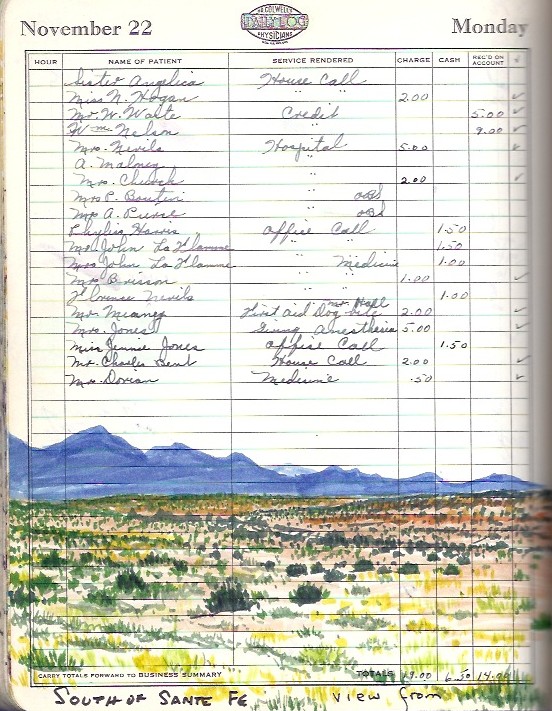 November 22
DR. COLWELL'S
DAILY LOG
PHYSICIANS
Monday
HOUR NAME OF PATIENT SERVICE RENDERED CHARGE CASH REC'D ON ACCOUNT √
Sister Angelica House Call
Miss N. Hogan " " 2.00 ✓
Mr. W. Waste Credit 5.00 ✓
Wm Nelson " 9.00 ✓
Mrs. Nevils Hospital 5.00 ✓
A. Maloney "
Mrs. Church " 2.00 ✓
Mrs P. Boutin " OBS
Mrs A. Pierse " OBS
Phyliss Harris Office Call 1.50
Mr. John La Flamme " " 1.50
Mrs John La Flamme " " Medicine 1.00
Mrs Brisson " " 1.00 ✓
Florence Nevils " " 1.00
Mr. Meaney First aid Dog bite Mr. Hall 2.00 ✓
Mrs. Jones Giving Anesthesia 5.00 ✓
Miss Jennie Jones Office Call 1.50
Mr. Charles Bent House Call 2.00 ✓
Mr. Dorian Medicine .50 ✓
CARRY TOTALS FORWARD TO BUSINESS SUMMARY TOTALS 19.00 6.50 14.00
SOUTH OF SANTE FE view from